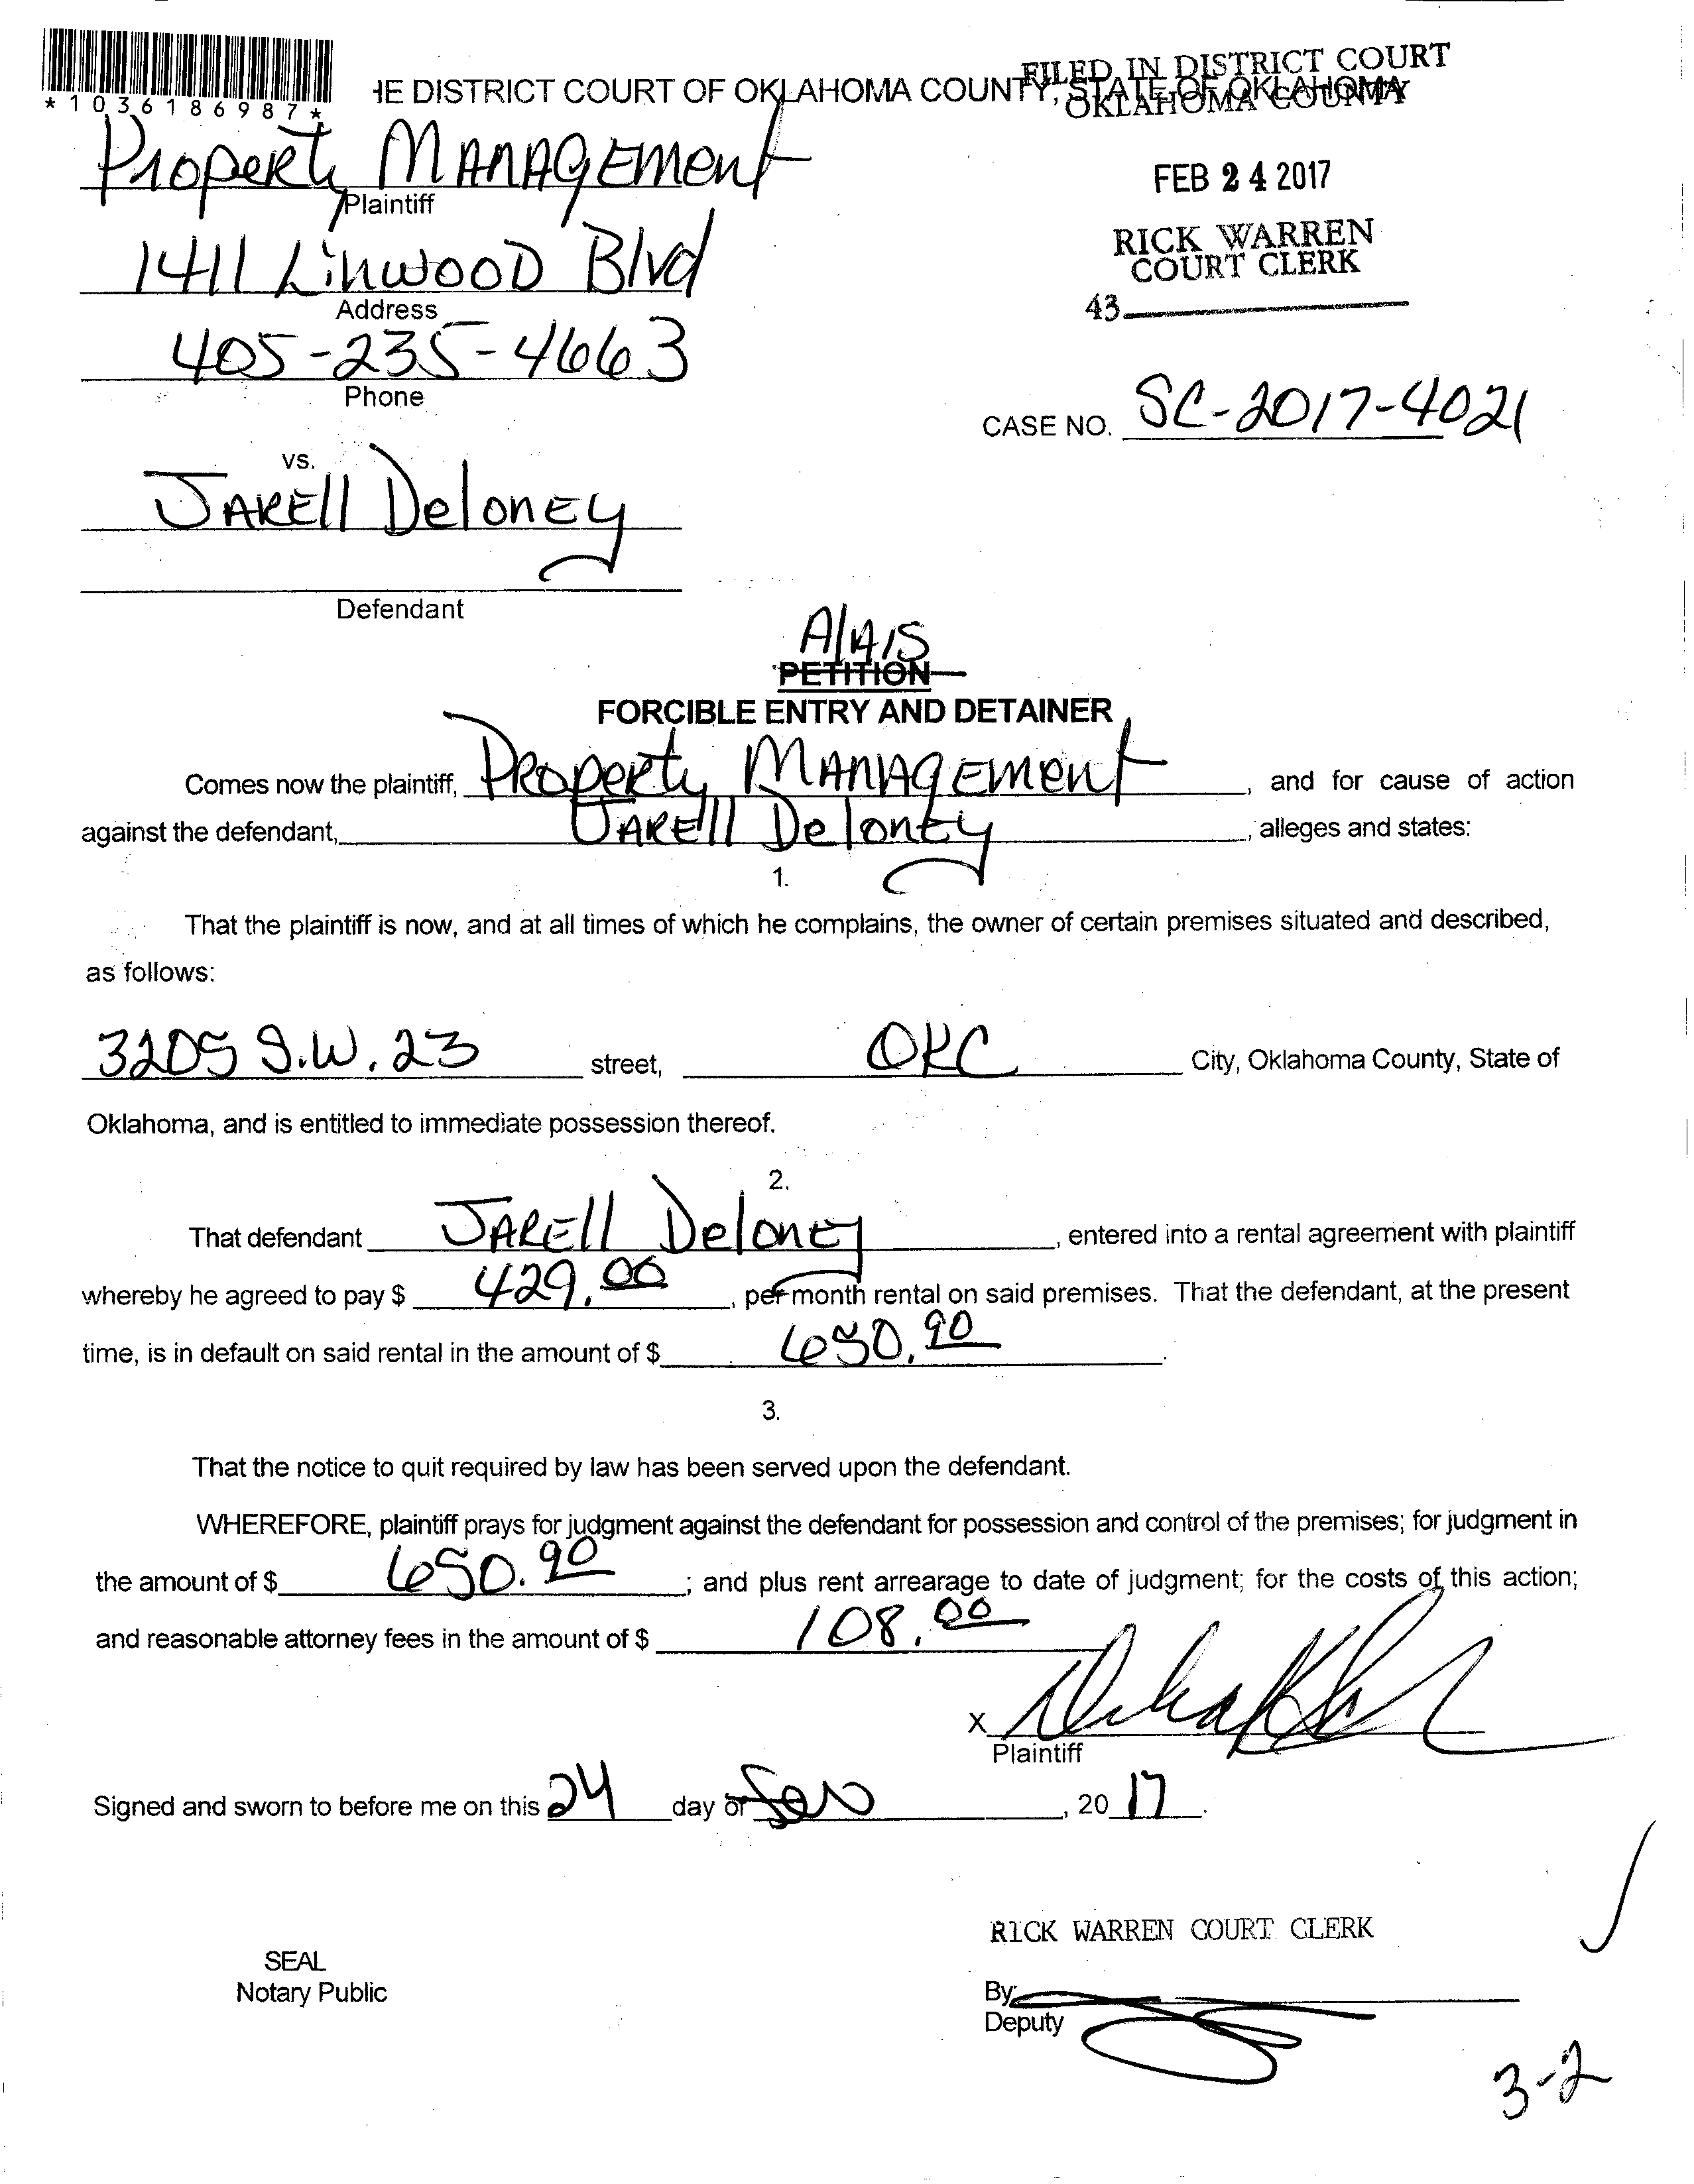 FILED IN DISTRICT COURT
HE DISTRICT COURT OF OKLAHOMA COUNTY, STATE OF OKLAHOMA
OKLAHOMA COUNTY
*1036186987*
Property Management
Plaintiff
FEB 24 2017
1411 Linwood Blvd
Address
RICK WARREN
COURT CLERK
43
405-235-4663
Phone
CASE NO. SC-2017-4021
vs.
Jarell Deloney
Defendant
Alais
PETITION
FORCIBLE ENTRY AND DETAINER
Comes now the plaintiff, Property Management, and for cause of action
against the defendant, Jarell Deloney, alleges and states:
1.
That the plaintiff is now, and at all times of which he complains, the owner of certain premises situated and described,
as follows:
3205 S.W. 23 street, OKC City, Oklahoma County, State of
Oklahoma, and is entitled to immediate possession thereof.
2.
That defendant Jarell Deloney, entered into a rental agreement with plaintiff
whereby he agreed to pay $ 429.00, per month rental on said premises. That the defendant, at the present
time, is in default on said rental in the amount of $ 650.90.
3.
That the notice to quit required by law has been served upon the defendant.
WHEREFORE, plaintiff prays for judgment against the defendant for possession and control of the premises; for judgment in
the amount of $ 650.90; and plus rent arrearage to date of judgment; for the costs of this action;
and reasonable attorney fees in the amount of $ 108.00
X
Plaintiff
Signed and sworn to before me on this 24 day of , 20 17.
RICK WARREN COURT CLERK
SEAL
Notary Public
By
Deputy
3-2